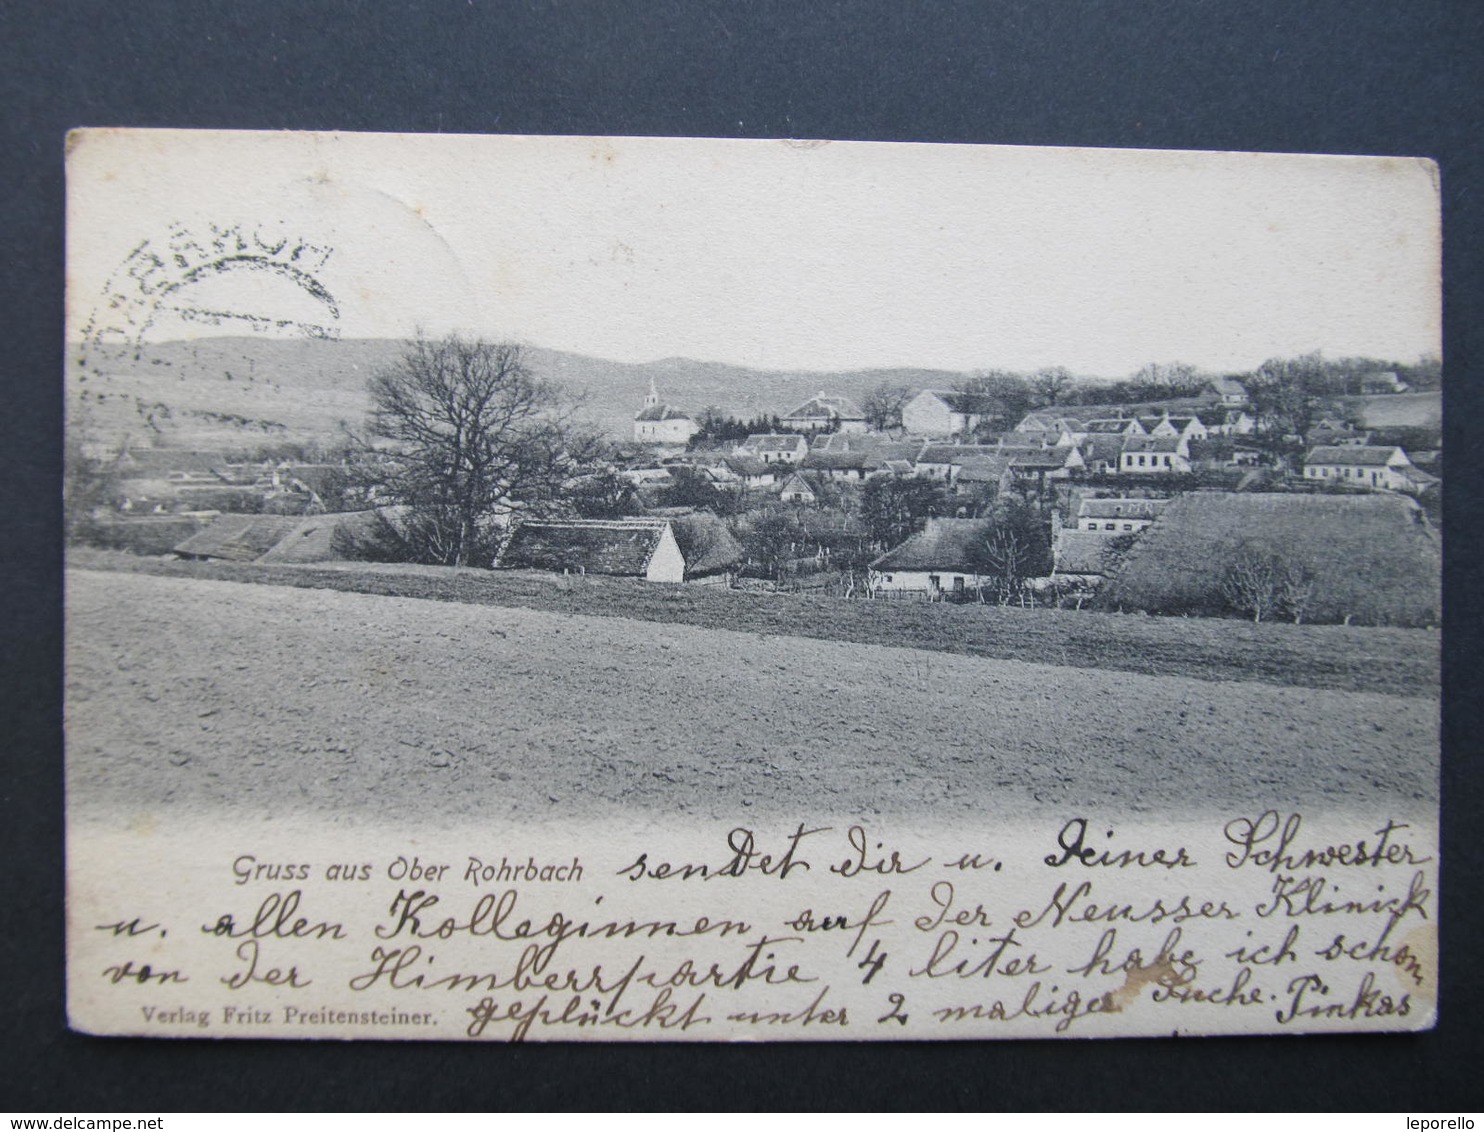 Gruss aus Ober Rohrbach sendet dir u. Deiner Schwester
u. allen Kolleginnen auf der Neusser Klinick
von der Himberrpartie 4 liter habe ich schon
Verlag Fritz Preitensteiner. geplückt unter 2 maliger Suche. Pinkas
leporello